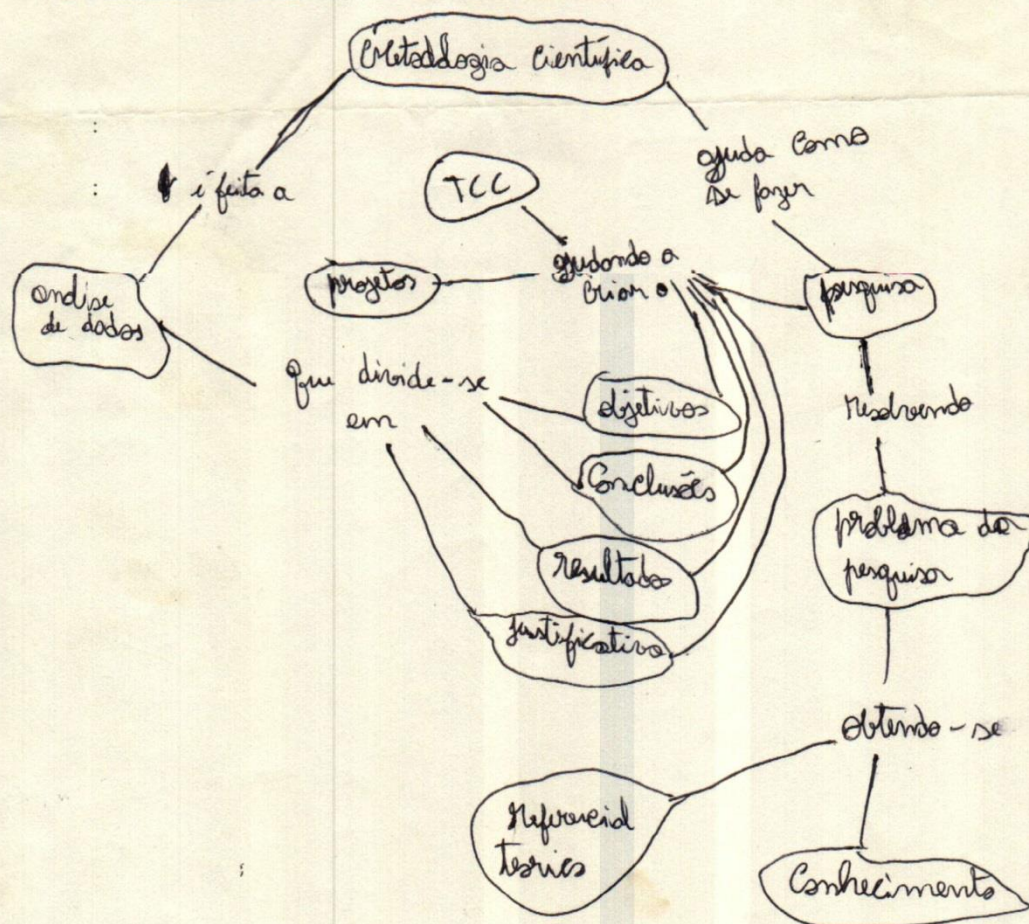 Metodologia Científica
é feita a
TCC
ajuda como
se fazer
análise
de dados
projetos
ajudando a
criar o
pesquisa
que divide-se
em
objetivos
Conclusões
resultados
justificativa
resolvendo
problema da
pesquisa
obtendo-se
Referencial
teórico
Conhecimento